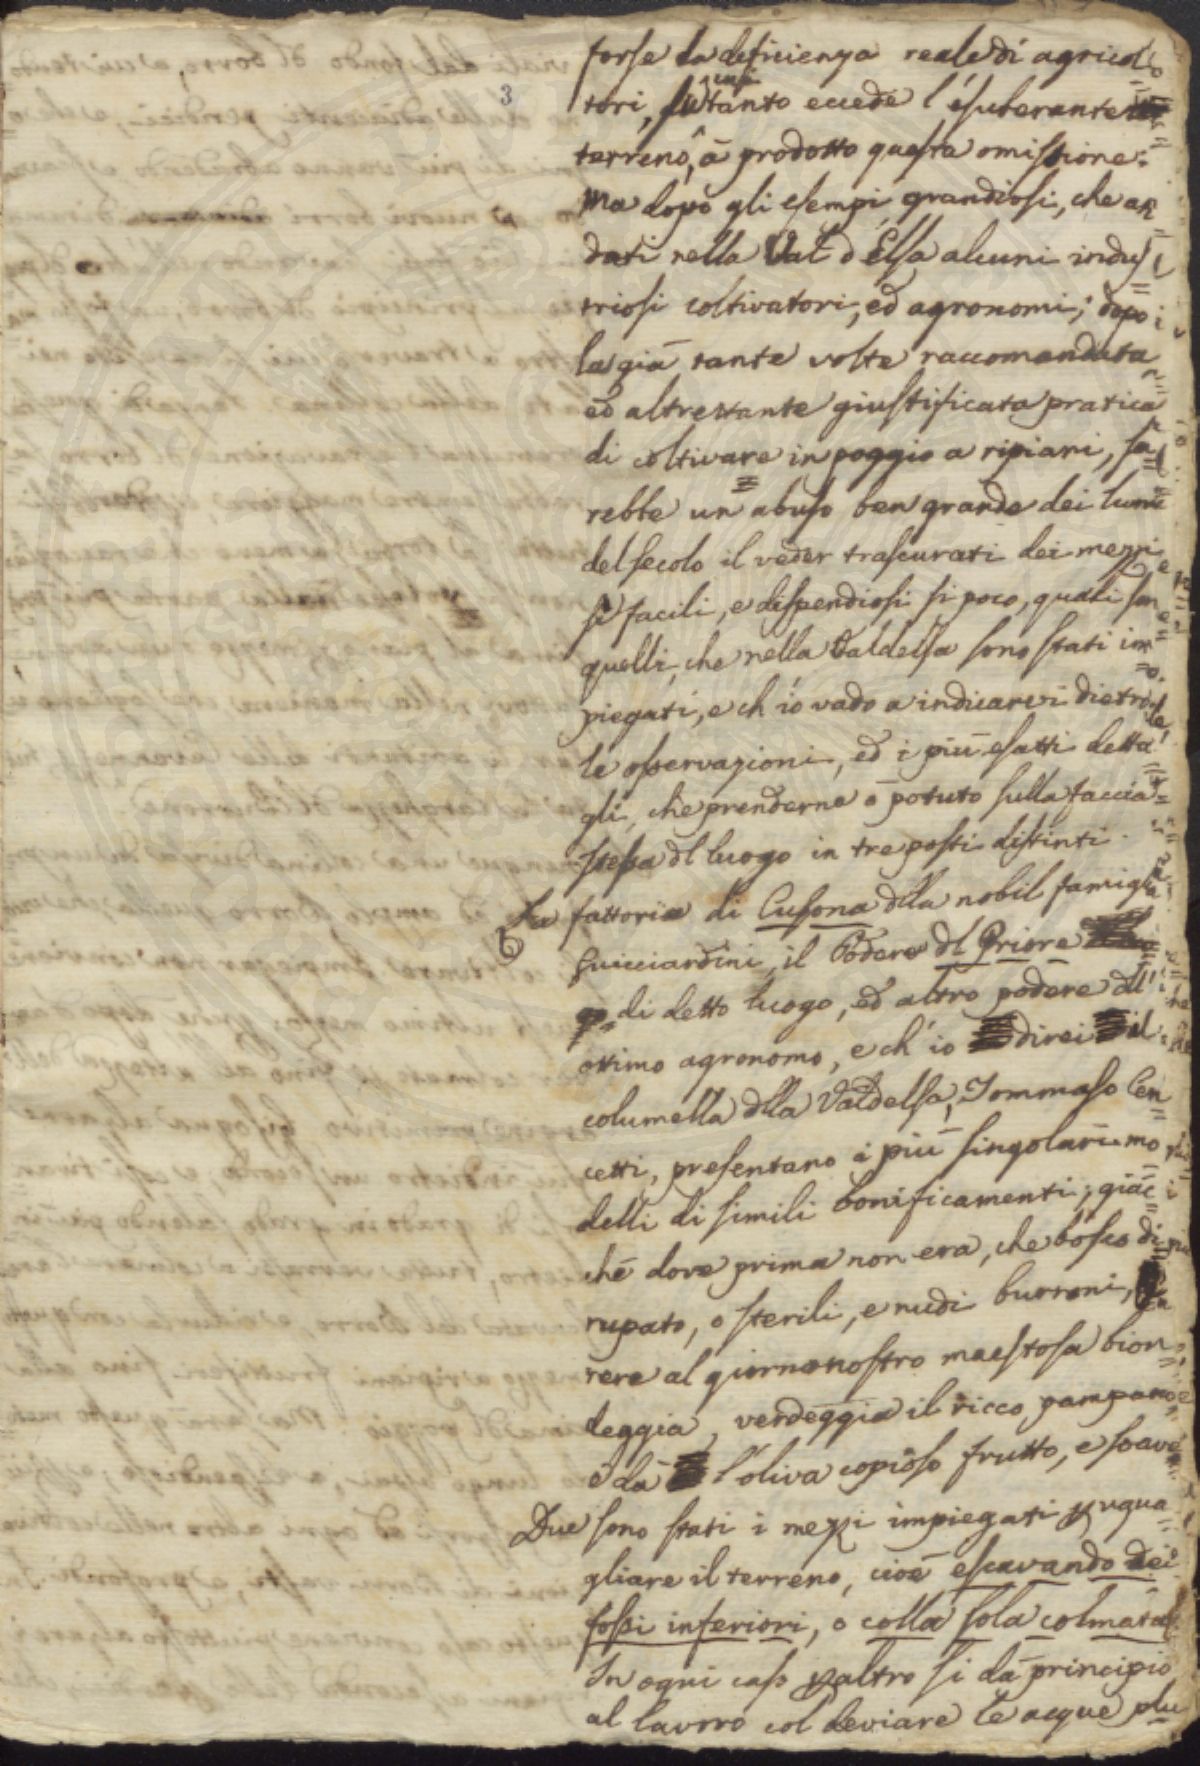 3
forse la deficienza reale di agricol
tori, su tanto eccede l'esuberante
terreno, à prodotto questa omissione.
Ma dopo gli esempi grandiosi, che an
dati nella Val d'Elsa alcuni indus
triosi coltivatori, ed agronomi; dopo
la già tante volte raccomandata
ed altrettante giustificata pratica
di coltivare in poggio a ripiani, sa
rebbe un abuso ben grande dei lumi
del secolo il veder trascurati dei mezzi
sì facili, e dispendiosi sì poco, quali son
quelli, che nella Valdelsa sono stati im
piegati, e ch'io vado a indicarvi dietro
le osservazioni, ed i più esatti detta
gli, che prenderne ò potuto sulla faccia
stessa dl luogo in tre posti distinti.
La fattoria di Cusona dlla nobil famiglia
Guicciardini, il Podere dl Priore
di detto luogo, ed altro podere dll'
ottimo agronomo, e ch'io direi il
columella dlla Valdelsa, Tommaso Cen
cetti, presentano i più singolari mo
delli di simili bonificamenti; giac
ché dove prima non era, che bosco di
rupato, o sterili, e nudi burroni,
rere al giorno nostro maestosa bion
deggia, verdeggia il ricco pampano,
e dà l'oliva copioso frutto, e soave
Due sono stati i mezzi impiegati p ugua
gliare il terreno, cioè escavando dei
fossi inferiori, o colla sola colmata
In ogni caso paltro si dà principio
al lavoro col deviare le acque plu